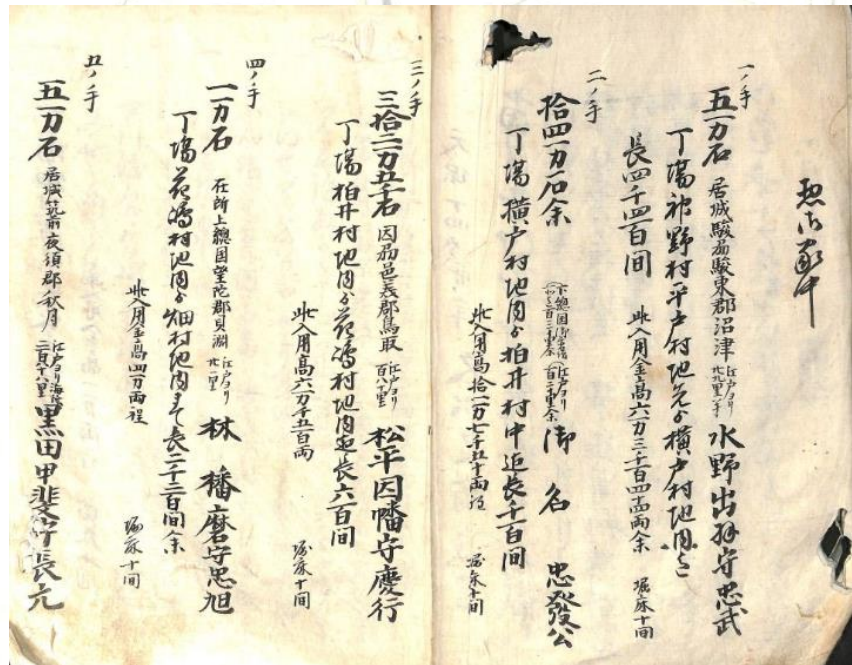 一ノ手
五万石 居城駿州駿東郡沼津 江戸ヨリ 水野出羽守忠武
丁場 村平戸村地先ゟ横戸村地内迄
長四千四百間 此入用金高六万三千百四十両余 堀床十間
二ノ手
拾四万石余 御名 忠發公
丁場横戸村地内ゟ柏井村中迄長千百間
此入用高拾一万七千五十両 堀床十間
三ノ手
三拾二万五千石 因州邑美郡鳥取 江戸ヨリ 百八十里 松平因幡守慶行
丁場柏井村地内ゟ花嶋村地内迄長六百間
此入用高六万千五百両 堀床十間
四ノ手
一万石 在所上総国望陀郡貝渕 江戸ヨリ 林 播磨守忠旭
丁場花嶋村地内ゟ畑村地内まて長二千二百間余
此入用金高四万両程 堀床十間
五ノ手
五万石 居城筑前夜須郡秋月 江戸ヨリ海陸 黒田甲斐守長元